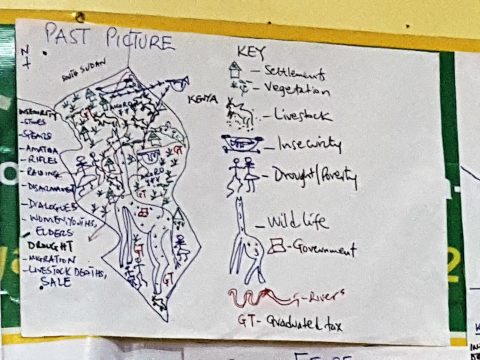 PAST PICTURE
N
SOUTH SUDAN
KENYA
INSECURITY
- STONES
- SPEARS
- AMATIDA
- RIFLES
- RAIDING
- DISARMAMENT
- DIALOGUES
- WOMEN, YOUTHS,
ELDERS
DROUGHT
- MIGRATION
- LIVESTOCK DEATHS,
SALE
GT
GT
GT
KEY
- Settlements
- Vegetation
- Livestock
- Insecurity
- Drought/Poverty
- Wild life
- Government
- Rivers
GT - Graduated tax
2